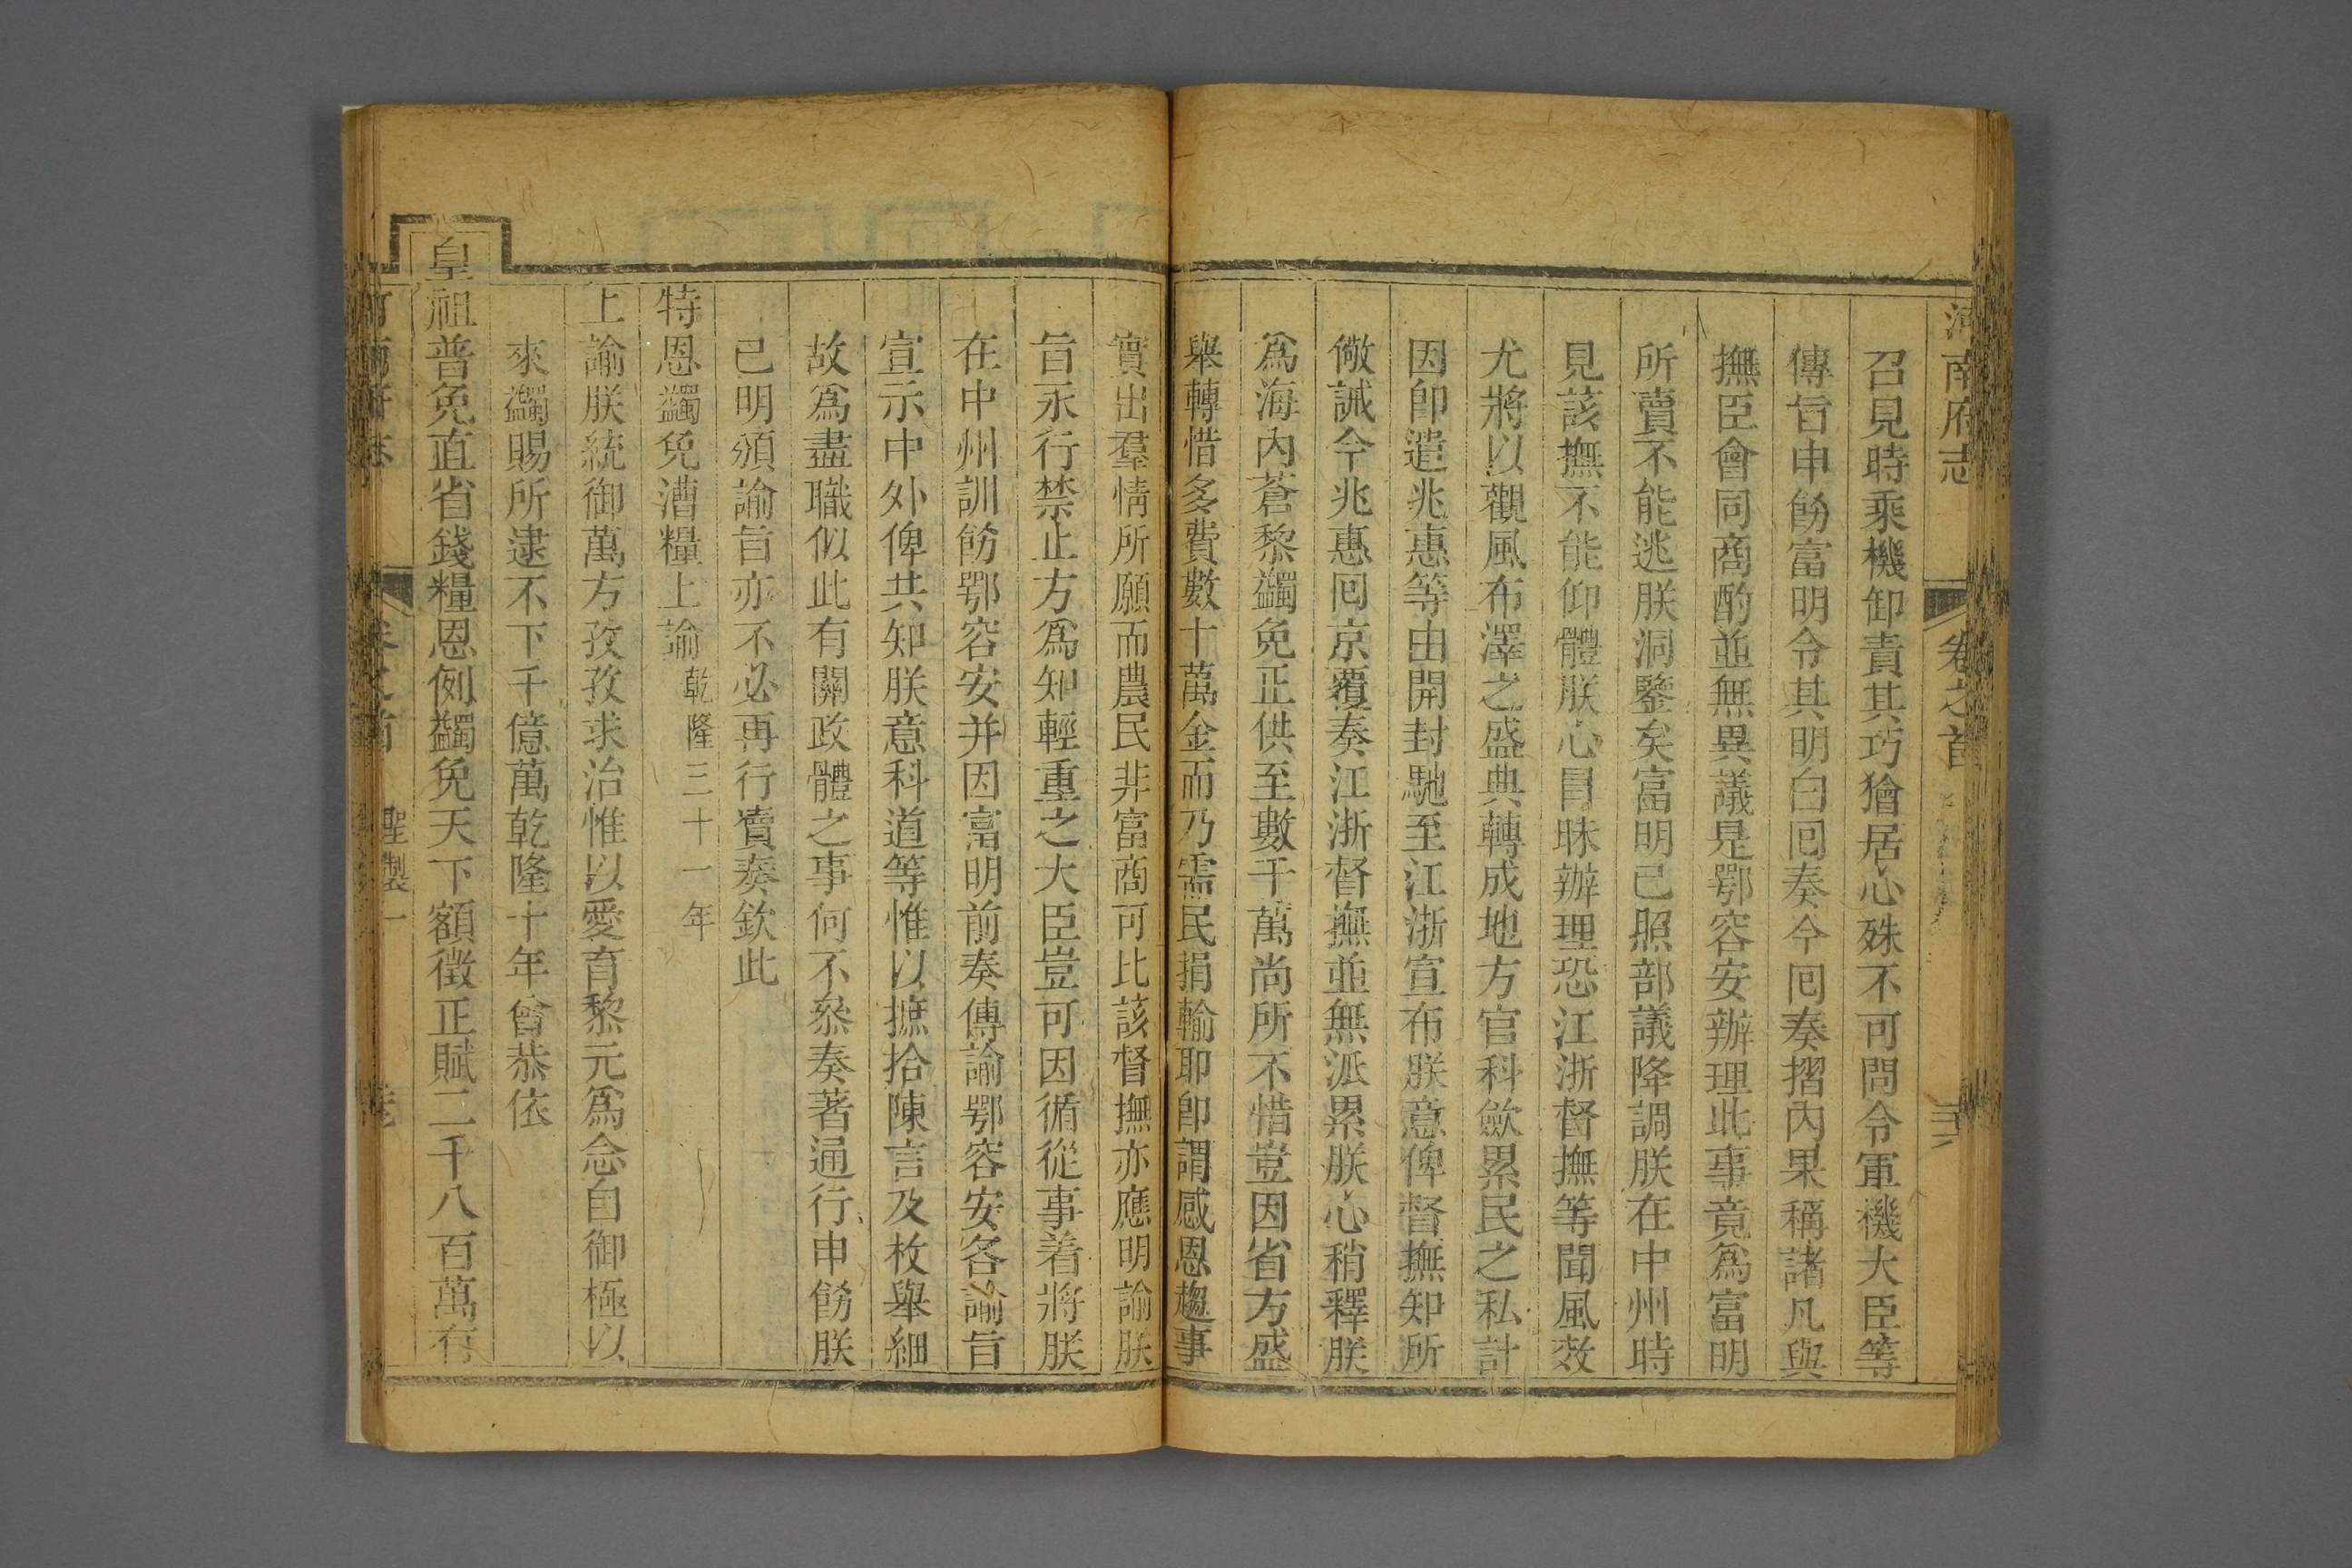 河南府志
卷之首
召見時乘機卸責其巧獪居心殊不可問令軍機大臣等
傳旨申飭富明令其明白囘奏今囘奏摺內果稱諸凡與
撫臣會同商酌並無異議是鄂容安辦理此事竟爲富明
所賣不能逃朕洞鑒矣富明已照部議降調朕在中州時
見該撫不能仰體朕心目昧辦理恐江浙督撫等聞風效
尤將以觀風布澤之盛典轉成地方官科歛累民之私計
因卽遣兆惠等由開封馳至江浙宣布朕意俾督撫知所
儆誡今兆惠囘京覆奏江浙督撫並無派累朕心稍釋朕
爲海內蒼黎蠲免正供至數千萬尚所不惜豈因省方盛
舉轉惜多費數十萬金而乃需民捐輸耶卽謂感恩趨事
實出羣情所願而農民非富商可比該督撫亦應明諭朕
旨永行禁止方爲知輕重之大臣豈可因循從事着將朕
在中州訓飭鄂容安并因富明前奏傳諭鄂容安各諭旨
宣示中外俾共知朕意科道等惟以摭拾陳言及枚舉細
故爲盡職似此有關政體之事何不叅奏著通行申飭朕
已明頒諭旨亦不必再行瀆奏欽此
特恩蠲免漕糧上諭乾隆三十一年
上諭朕統御萬方孜孜求治惟以愛育黎元爲念自御極以
來蠲賜所逮不下千億萬乾隆十年曾恭依
皇祖普免直省錢糧恩例蠲免天下額徵正賦二千八百萬有
聖製一